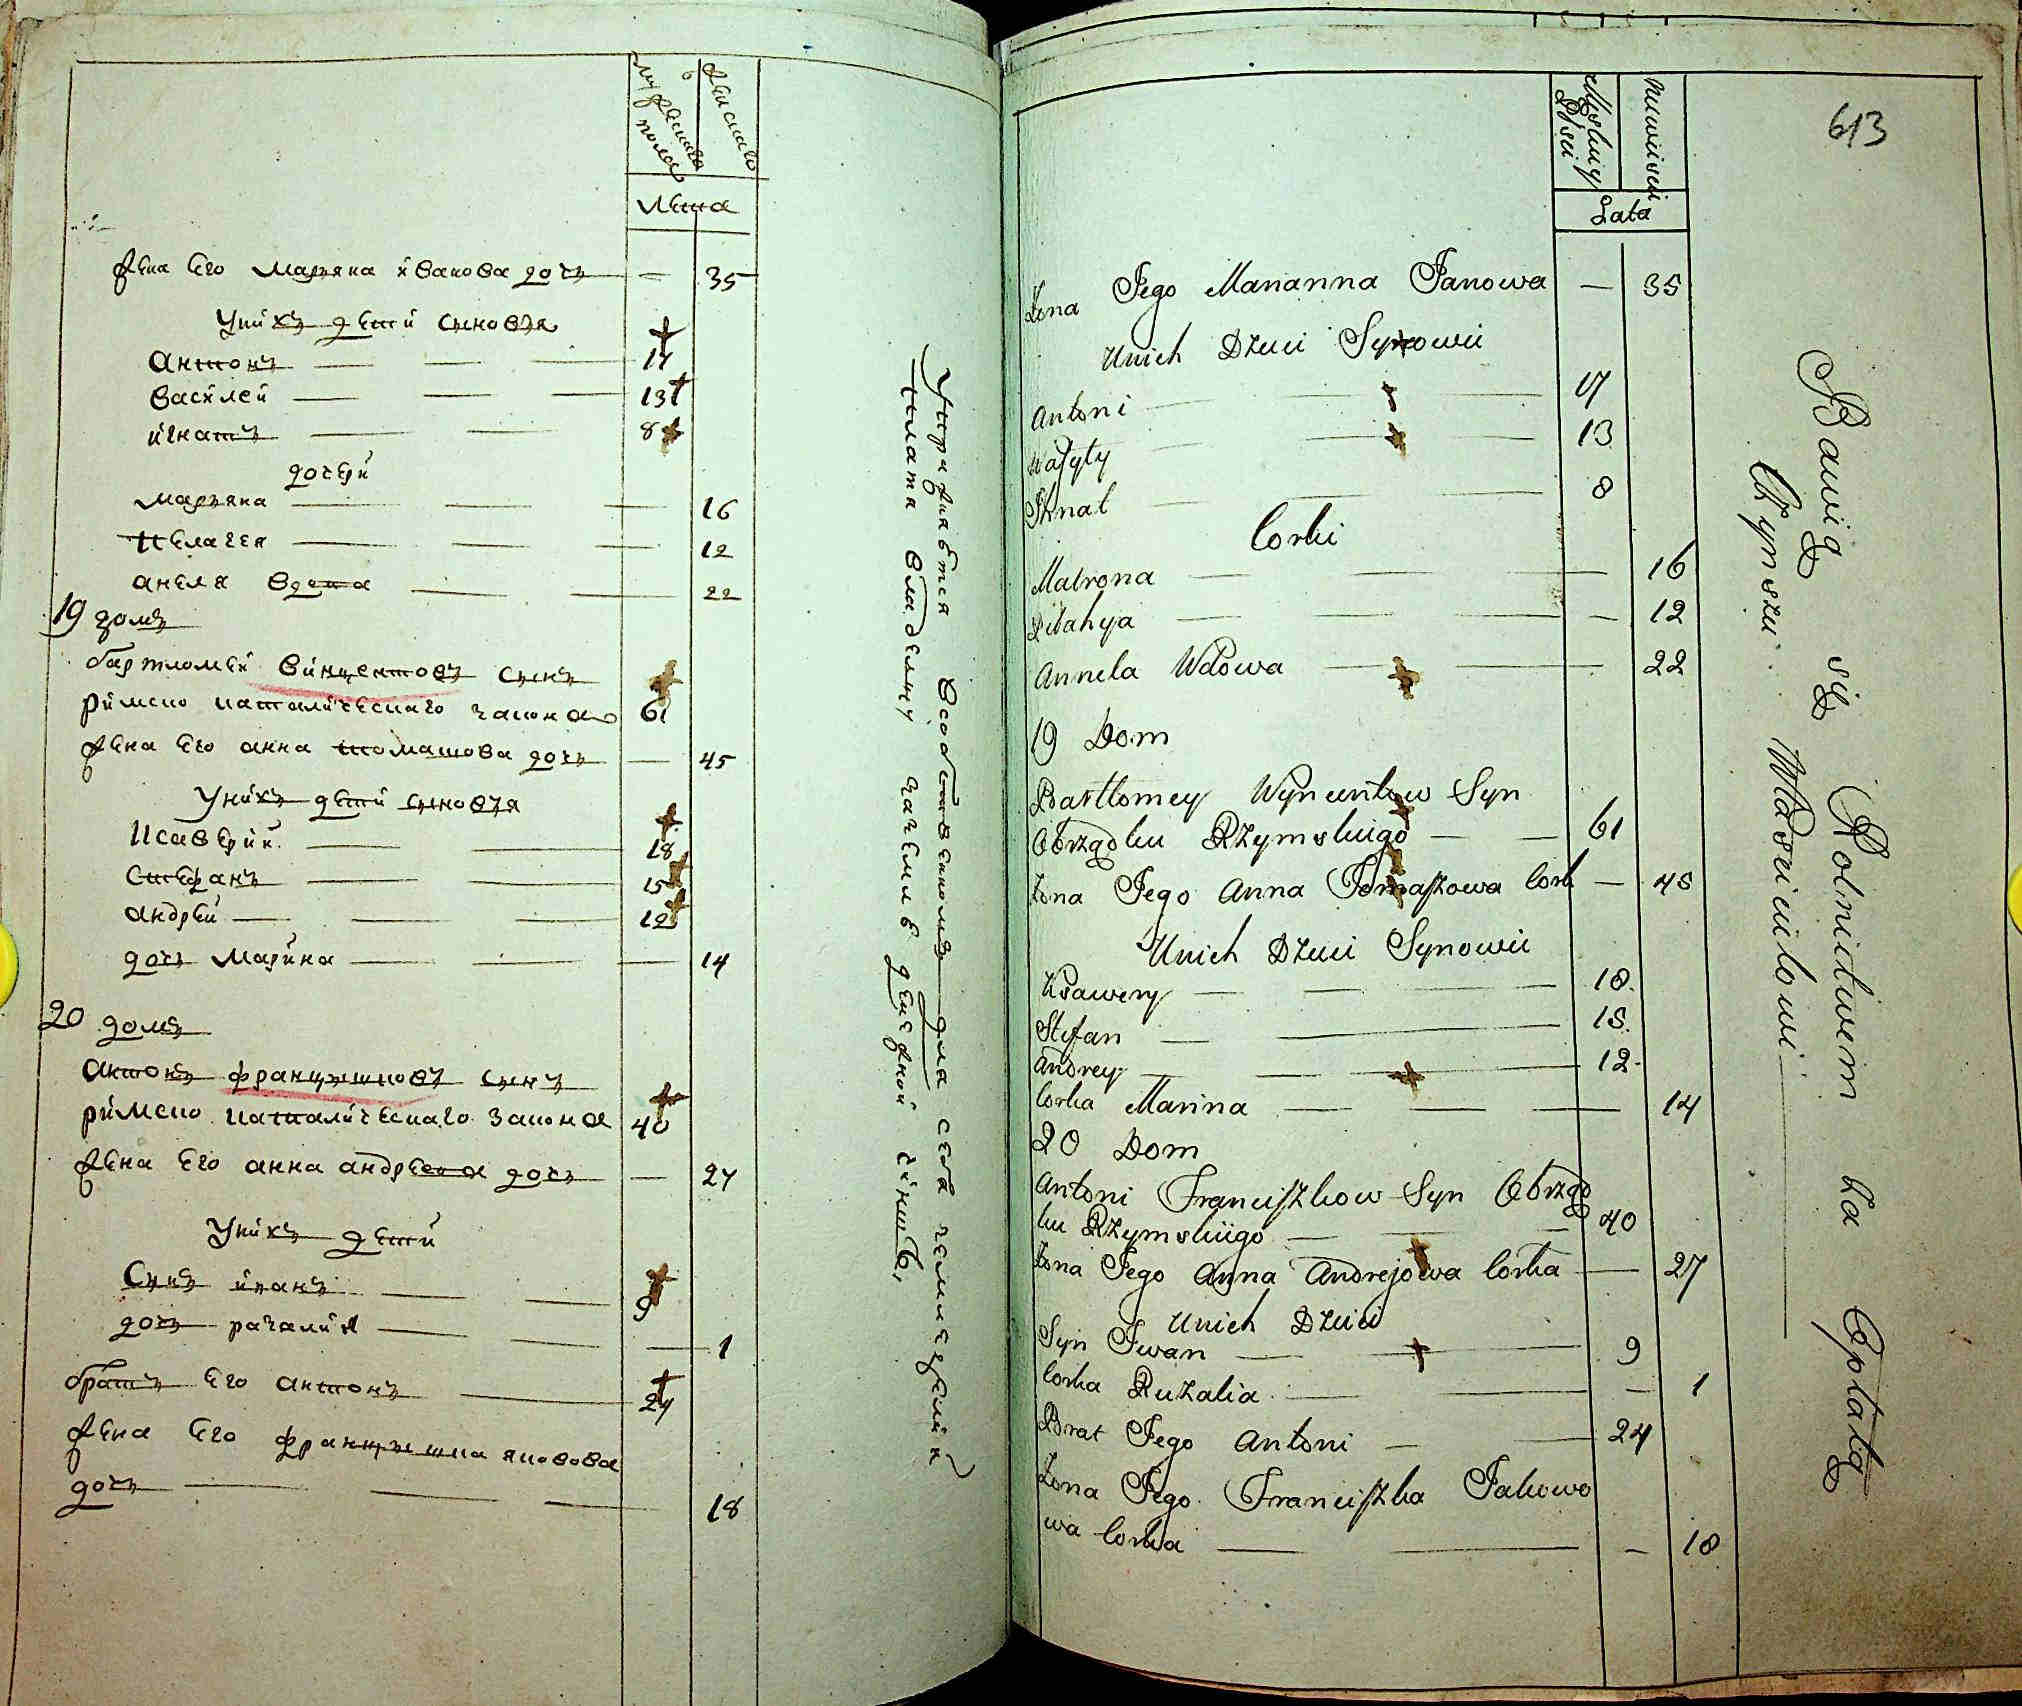 мужескаго пола
женскаго
Лета
жена его марьяна иванова дочь — 35
У них дети сыновья
антонъ 17
василей 13
игнатъ 8
дочери
марьяна 16
пелагея 12
анеля вдова 22
19 домъ
бартломей винцентовъ сынъ
римско католическаго закона 61
жена его анна томашова дочь — 45
У них дети сыновья
Ксаверий 18
Стефанъ 15
андрей 12
дочь марина 14
20 домъ
антонъ францышковъ сынъ
римско католическаго закона 40
жена его анна андреева дочь — 27
У них дети
Сынъ иванъ 9
дочь разалия — 1
братъ его антонъ 24
жена его францышка яковова
дочь 18
Упражняется в собственномъ для себя земледелии
с платы владельцу за землю денежной чинш
613
Męskiey Płci
Niewieści
Lata
Żona Jego Marianna Janowa — 35
Unich Dzieci Synowii
Antoni 17
Wasyly 13
Ihnat 8
Corki
Matrona 16
Pelahya 12
Annela Wdowa 22
19 Dom
Bartłomey Wyncentow Syn
Obrządku Rzymskiego — 61
Żona Jego Anna Tomaszowa Cork — 45
Unich Dzieci Synowii
Ksawery 18
Stefan 15
Andrey 12
Corka Marina 14
20 Dom
Antoni Franciszkow Syn Obrząd
ku Rzymskiego — 40
Żona Jego Anna Andrejowa Corka — 27
Unich Dzieci
Syn Iwan 9
Corka Ruzalia — 1
Brat Jego Antoni — 24
Żona Jego Franciszka Jakowo
wa Corka — 18
Bawią się Rolnictwem za Opłatą
Czynszu Właścicielowi